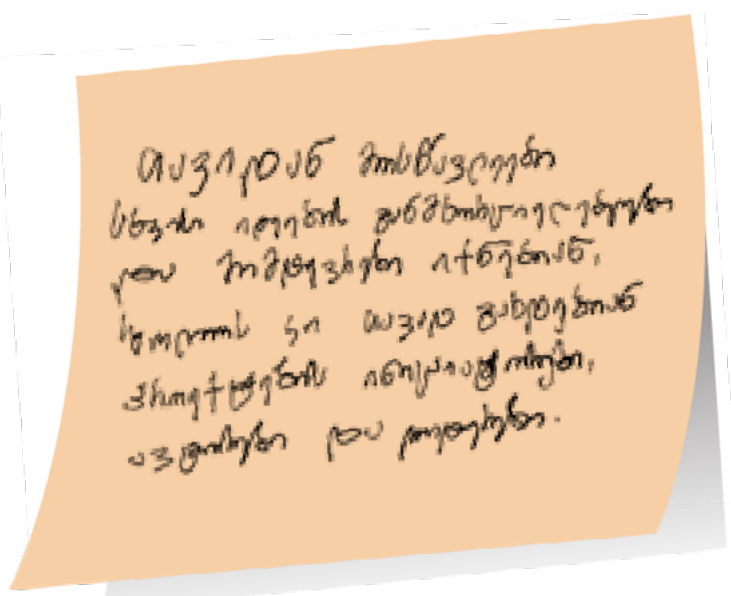 თავიდან მოსწავლეები
სხვისი იდეების განმხორციელებლები
და მიმდევრები იქნებიან,
ბოლოს კი თავად გახდებიან
პროექტების ინიციატორები,
ავტორები და ლიდერები.